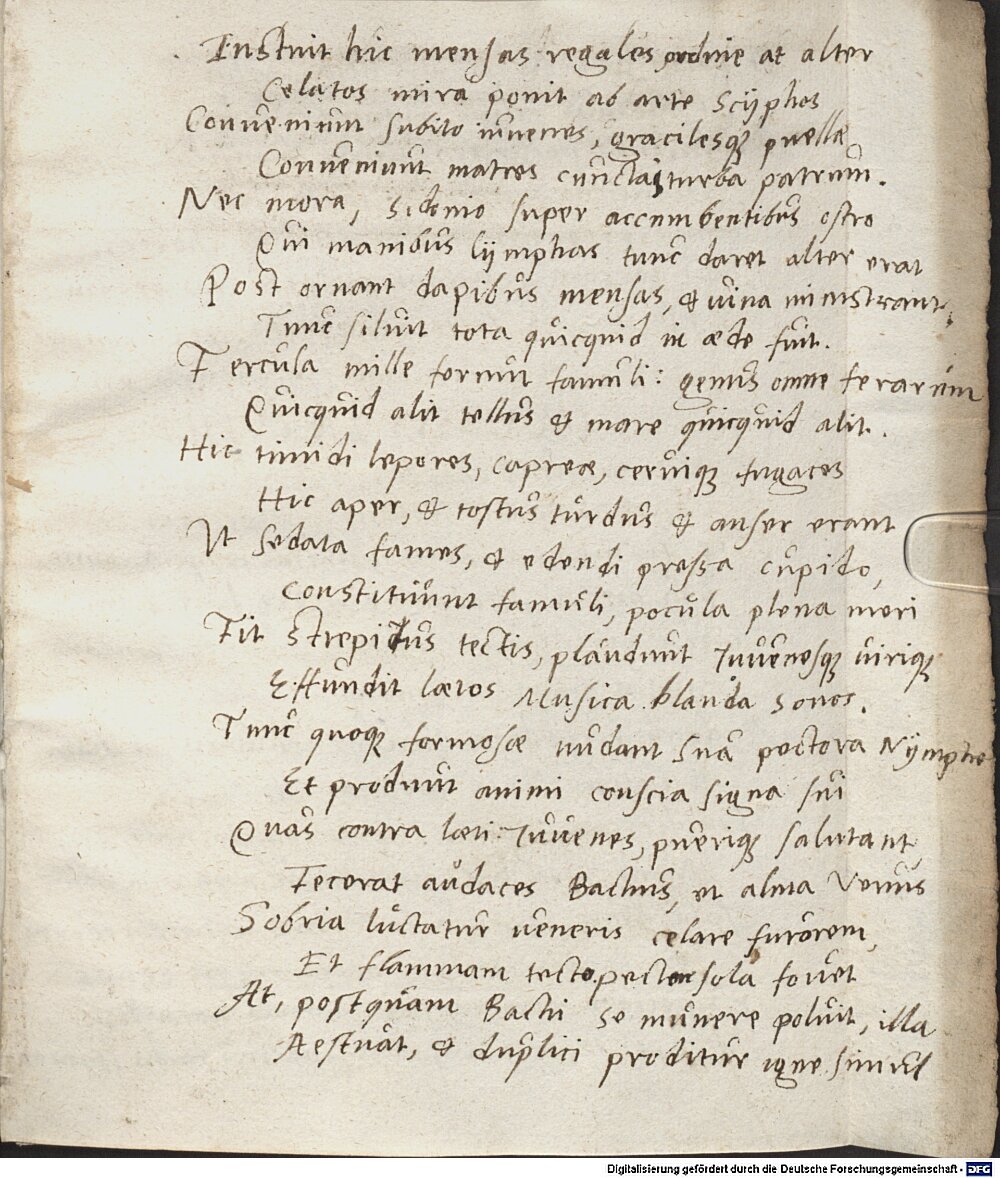 Instruit hic mensas regales ordine at alter
Celatos mira ponit ab arte Scÿphos
Conveniunt subito iuvenes, gracilesq; puellæ
Conveniunt matres cunctaq; turba patrum.
Nec mora, Sidonio super accumbentibus ostro
Qui manibus lÿmphas tunc daret alter erat
Post ornant dapibus mensas, & vina ministrant;
Tunc siluit tota quicquid in æde fuit.
Fercula mille ferunt famuli: genus omne ferarum
Quicquid alit tellus & mare quicquid alit.
Hic timidi lepores, capreæ, cervique fugaces
Hic aper, & tostus turdus & anser erant
Ut sedata fames, & edendi pressa cupido,
Constituunt famuli, pocula plena meri
Fit strepitus tectis, plaudunt Iuvenesq; virique
Effundit lætos Musica blanda sonos.
Tunc quoq; formosæ nudant sua pectora Nÿmphæ
Et produnt animi conscia signa sui
Quas contra læti Iuvenes, puerique salutant
Fecerat audaces Bachus, et Venus
Sobria luctatur veneris celare furorem,
Et flammam tecto pectore sola fovet
At, postquam Bachi se munere poluit, illa
Aestuat, & duplici proditur igne simul
Digitalisierung gefördert durch die Deutsche Forschungsgemeinschaft - DFG